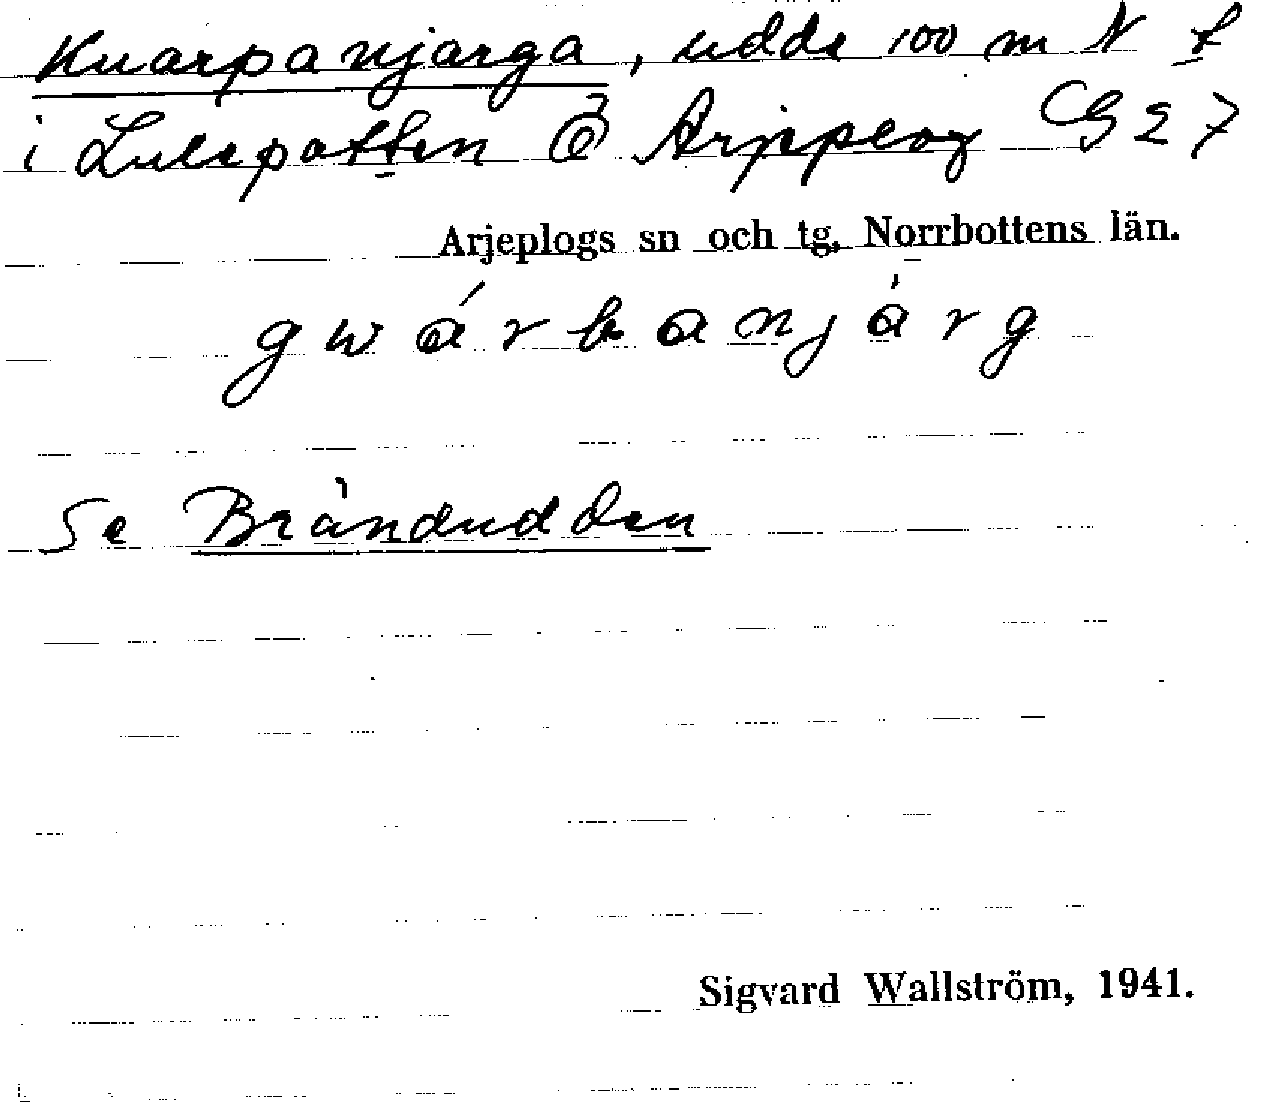 Kuarpanjarga, udde 100 m N f
i Lulepotten Ö Arjeplog G 27
Arjeplogs sn och tg. Norrbottens län.
gwárbanjárg
Se Brännudden
Sigvard Wallström, 1941.